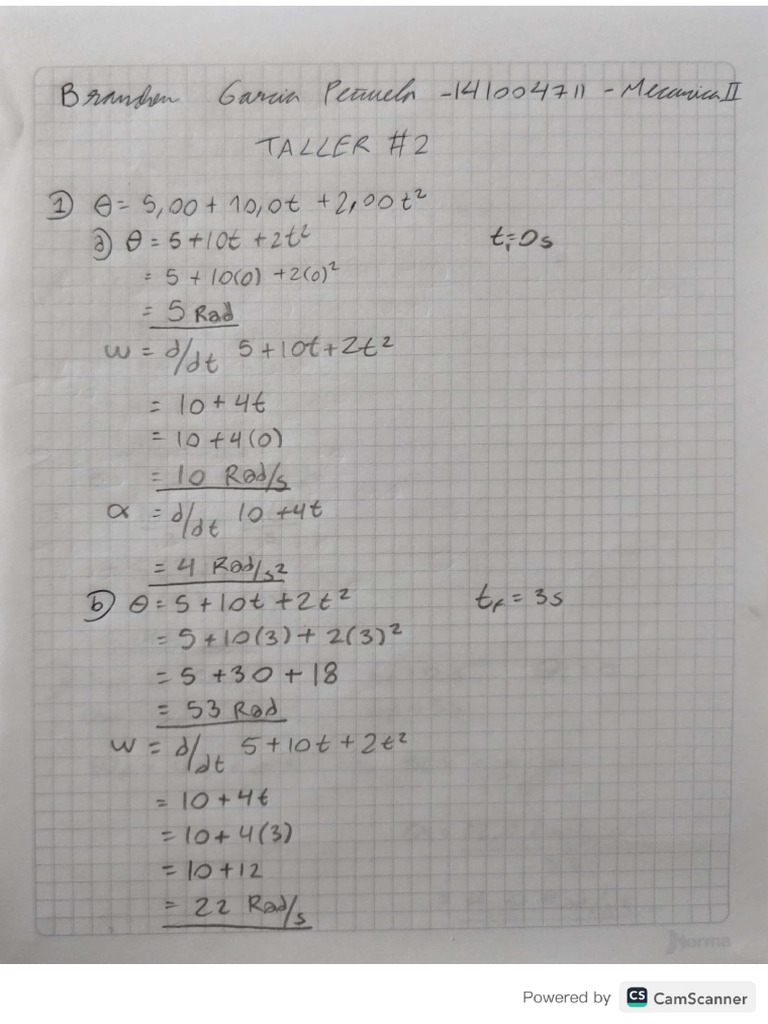 Brandon Garcia Peñuela -141004711 - Mecanica II
TALLER #2
1) θ= 5,00 + 10,0t +2,00t²
a) θ = 5+10t +2t² t₁=0s
= 5 + 10(0) +2(0)²
= 5 Rad
w = d/dt 5+10t+2t²
= 10 + 4t
= 10 +4(0)
= 10 Rad/s
α = d/dt 10 +4t
= 4 Rad/s²
b) θ = 5+10t +2t² tf = 3s
= 5+10(3)+ 2(3)²
= 5 +30 + 18
= 53 Rad
w = d/dt 5+10t+2t²
= 10 +4t
= 10+ 4(3)
= 10 +12
= 22 Rad/s
Norma
Powered by CS CamScanner